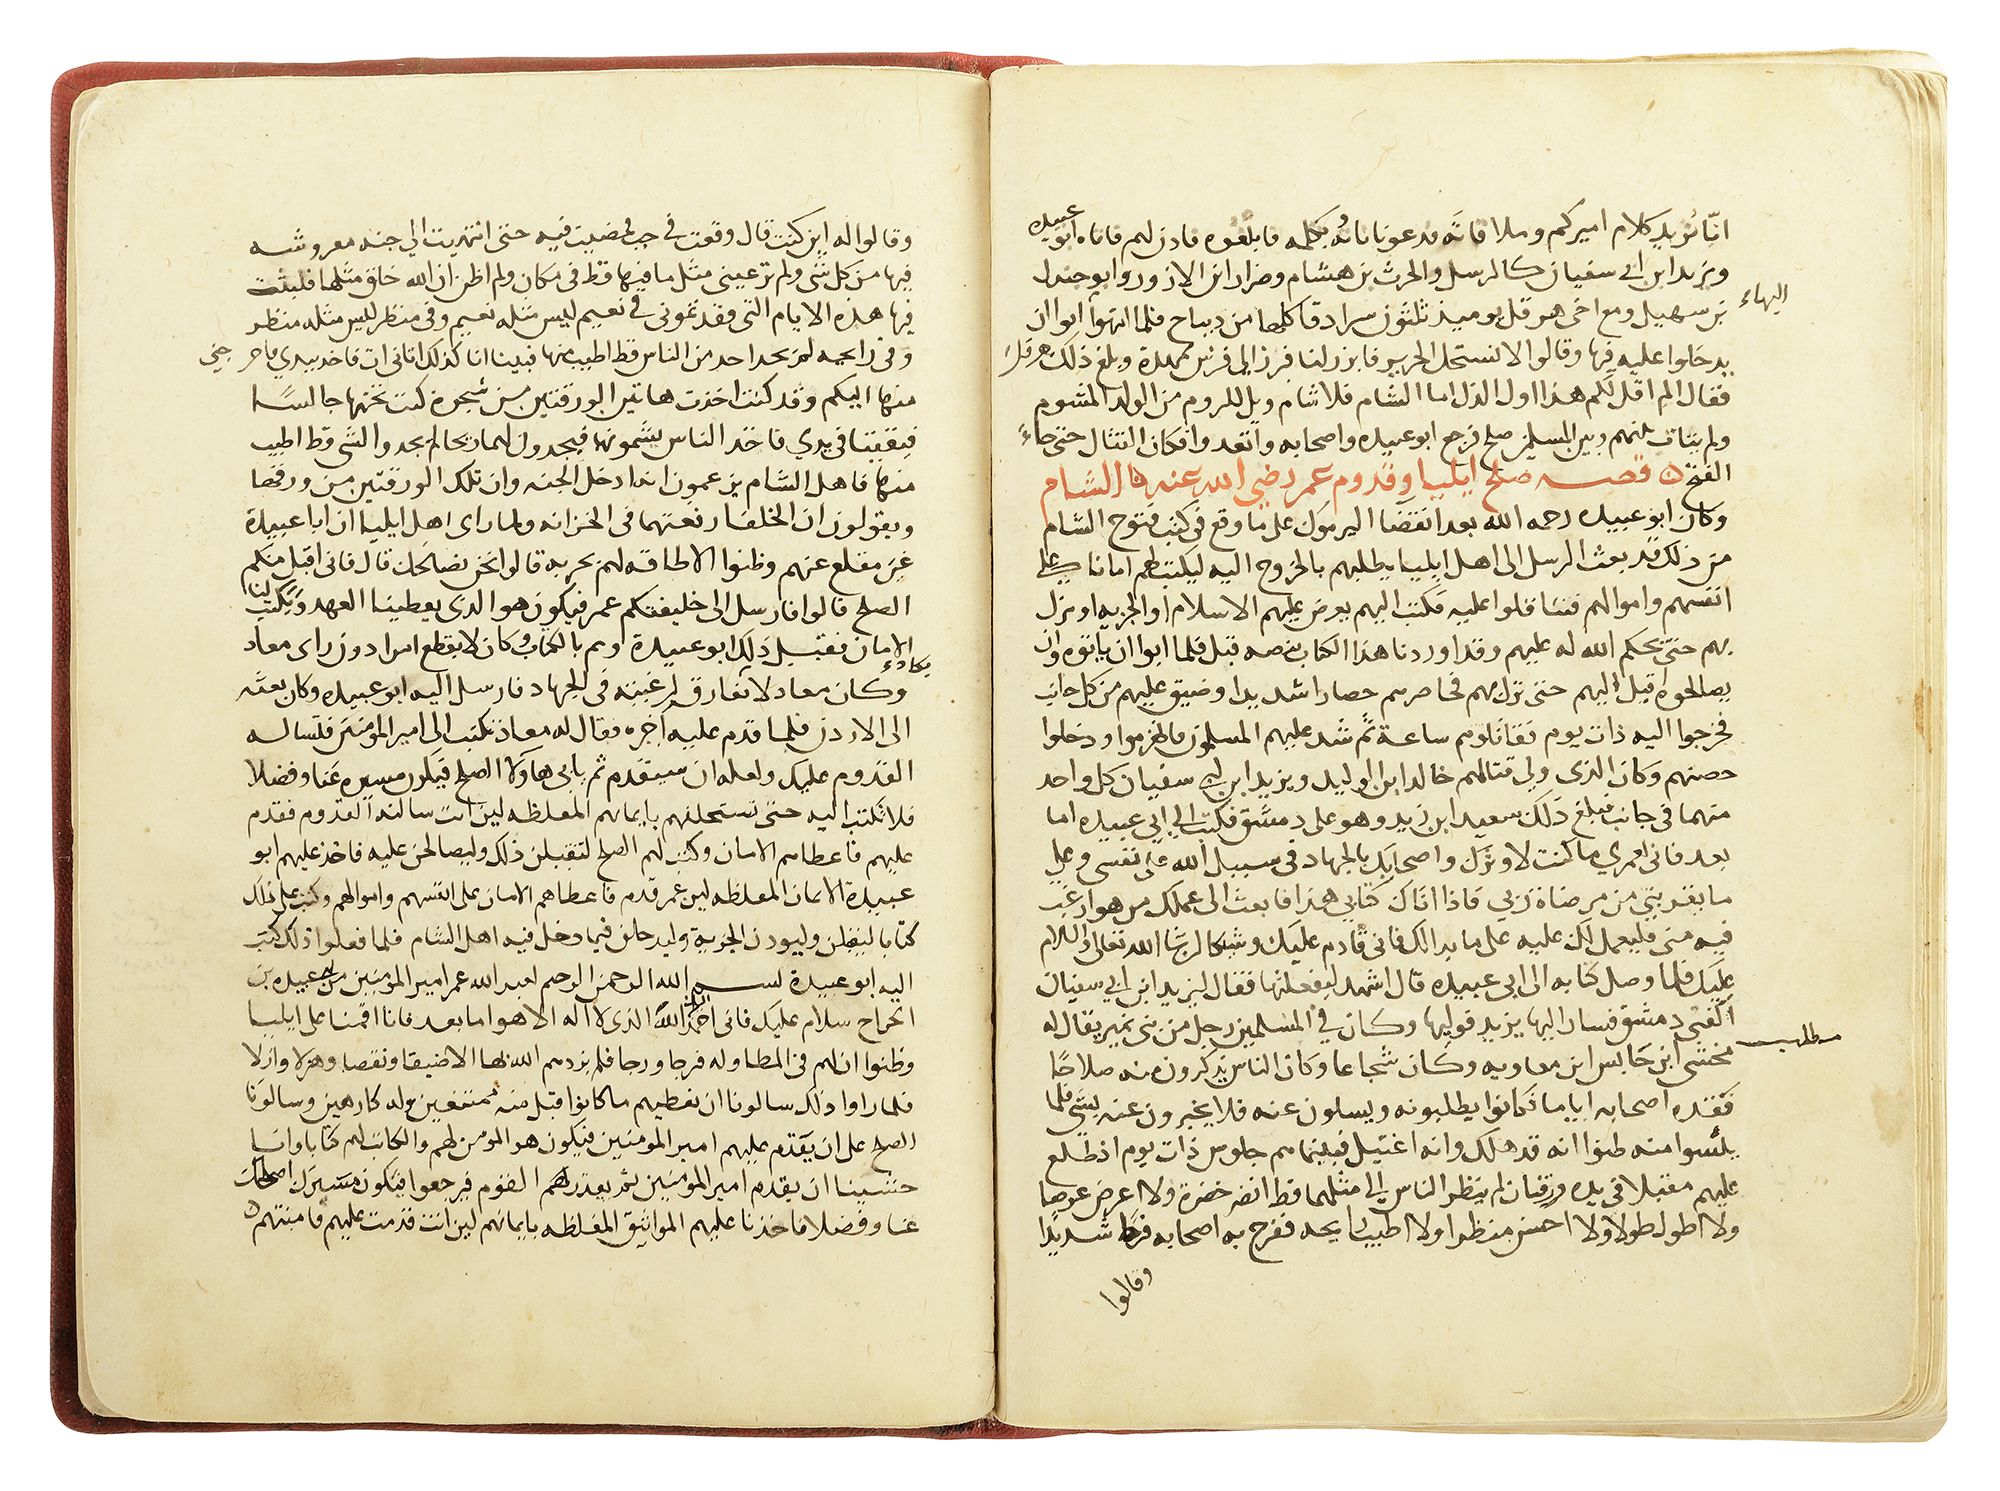 انّا نريد كلام اميركم وملاقاته فدعونا ناته ونكلمه فابلغوه فاذن لهم فاتاه ابو عبيده
ويزيد ابن ابي سفيان كالرسل والحرث بن هشام وضرار ابن الازور وابو جندل
بن سهيل ومع اخي هرقل يوميذ ثلثون سرادقا كلها من ديباح فلما انتهوا ابوا ان
اليهاء
يدخلوا عليه فيها وقالوا لا نستحل الحرير فابرز لنا فبرز الى فرش ممهدة وبلغ ذلك هرقل
فقال الم اقل لكم هذا اول الذل اما الشام فلا شام وبل للروم من الولد المشوم
ولم يتات بينهم وبين المسلمين صلح فرجع ابو عبيده واصحابه واتعدوا فكان القتال حتى جاء
الفتح ن قصه صلح ايليا وقدوم عمر رضي الله عنه الشام
وكان ابو عبيده رحمه الله بعد انقضا اليرموك على ما وقع في كتب فتوح الشام
من ذلك قد بعث الرسل الى اهل ايليا يطلبهم بالخروج اليه ليكتب لهم امانا على
انفسهم واموالهم فتثاقلوا عليه فكتب اليهم يعرض عليهم الاسلام او الجزيه او نزل
بهم حتى يحكم الله له عليهم وقد اوردنا هذا الكتاب بنصه قبل فلما ابوا ان ياتوه وان
يصالحوه اقبل اليهم حتى نزل بهم فحاصرهم حصارا شديدا وضيق عليهم من كل جانب
فخرجوا اليه ذات يوم فقاتلوهم ساعة ثم شد عليهم المسلمون فانهزموا ودخلوا
حصنهم وكان الذى ولي قتالهم خالد ابن الوليد ويزيد ابن ابي سفيان كل واحد
منهما في جانب فبلغ ذلك سعيد ابن زيد وهو على دمشق فكتب الي ابي عبيده اما
بعد فاني لعمري ما كنت لاوثرك واصحابك بالجهاد في سبيل الله على نفسي وعلى
ما يقربني من مرضاة ربي فاذا اتاك كتابي هذا فابعث الى عملك من هو ارغب
فيه مني فليعمل لك عليه على ما بدا لك فاني قادم عليك وشيكا ان شا الله تعالى والسلام
عليك فلما وصل كتابه الى ابي عبيده قال اشهد ليفعلنها فقال ليزيد ابن ابي سفيان
اكفني دمشق فسار اليها يزيد فوليها وكان في المسلمين رجل من بني نمير يقال له
مطلب
مخشى ابن حابس ابن معاويه وكان شجاعا وكان الناس يذكرون منه صلاحا
ففقده اصحابه اياما فكانوا يطلبونه ويسلون عنه فلا يخبرون عنه بشي فلما
يئسوا منه ظنوا انه قد هلك وانه اغتيل فبينما هم جلوس ذات يوم اذ طلع
عليهم مقبلا في يده ورقتان لم ينظر الناس الي مثلهما قط انضر خضرة ولا اعرض عرضا
ولا اطول طولا ولا احسن منظرا ولا اطيب رايحه ففرح به اصحابه فرحا شديدا
وقالوا
وقالوا له اين كنت قال وقعت في جب فمضيت فيه حتى انتهيت الي جنه معروشه
فيها من كل شى ولم تر عيني مثل ما فيها قط في مكان ولم اظن ان الله خلق مثلها فلبثت
فيها هذه الايام التي فقدتموني في نعيم ليس مثله نعيم وفي منظر ليس مثله منظر
وفي رايحه لم يجد احد من الناس قط اطيب منها فبينا انا كذلك اتاني ات فاخذ بيدي فاخرجني
منها اليكم وقد كنت اخذت هاتين الورقتين من شجرة كنت تحتها جالسا
فبقيتا في يدي فاخذ الناس يشمونها فيجدون لهما ريحا لم يجدوا لشى قط اطيب
منها فاهل الشام يزعمون انه ادخل الجنه وان تلك الورقتين من ورقها
ويقولون ان الخلفا رفعتهما في الخزانه ولما راى اهل ايليا ان ابا عبيدة
غير مقلع عنهم وظنوا الا طاقه لهم بحربه قالوا نحن نصالحك قال فاني اقبل منكم
الصلح قالوا فارسل الى خليفتكم عمر فيكون هو الذى يعطينا العهد ويكتب لنا
الامان فقبل ذلك ابو عبيدة وهم بالكتاب وكان لا يقطع امرا دون راى معاد
وكان معاد لا يفارقه لرغبته في الجهاد فارسل اليه ابو عبيده وكان بعثه
يكاد
الى الاردن فلما قدم عليه اخبره فقال له معاذ نكتب الى امير المومنين فتساله
القدوم عليك ولعله ان سيقدم ثم يابى هاولا الصلح فيكون مسيره عنا وفضلا
فلا تكتب اليه حتى تستحلفهم بايمانهم المغلظه لين انت سالته القدوم فقدم
عليهم فاعطاهم الامان وكتب لهم الصلح لتقبلن ذلك وليصالحن عليه فاخذ عليهم ابو
عبيدة الايمان المغلظه لين عمر قدم فاعطاهم الامان على انفسهم واموالهم وكتب على ذلك
كتابا ليقبلن وليودن الجزية وليدخلن فيما دخل فيه اهل الشام فلما فعلوا ذلك كتب
اليه ابو عبيدة بسم الله الرحمن الرحيم لعبد الله عمر امير المومنين من ابي عبيده بن
الجراح سلام عليك فاني احمد اليك الله الذى لا اله الا هو اما بعد فانا اقمنا على ايليا
وظنوا ان لهم في المطاوله فرجا ورجا فلم يزدهم الله بها الا ضيقا ونقصا وهزلا وازلا
فلما راوا ذلك سالونا ان نعطيهم ما كانوا قبل منه ممتنعين وله كارهين وسالونا
الصلح على ان يقدم عليهم امير المومنين فيكون هو المومن لهم والكاتب لهم كتابا وانا
خشينا ان يقدم امير المومنين ثم يغدر القوم فيرجعوا فيكون مسيرك اصلحك
عنا وفضلا فاخذنا عليهم المواثيق المغلظه بايمانهم لين انت قدمت عليهم فامنتهم